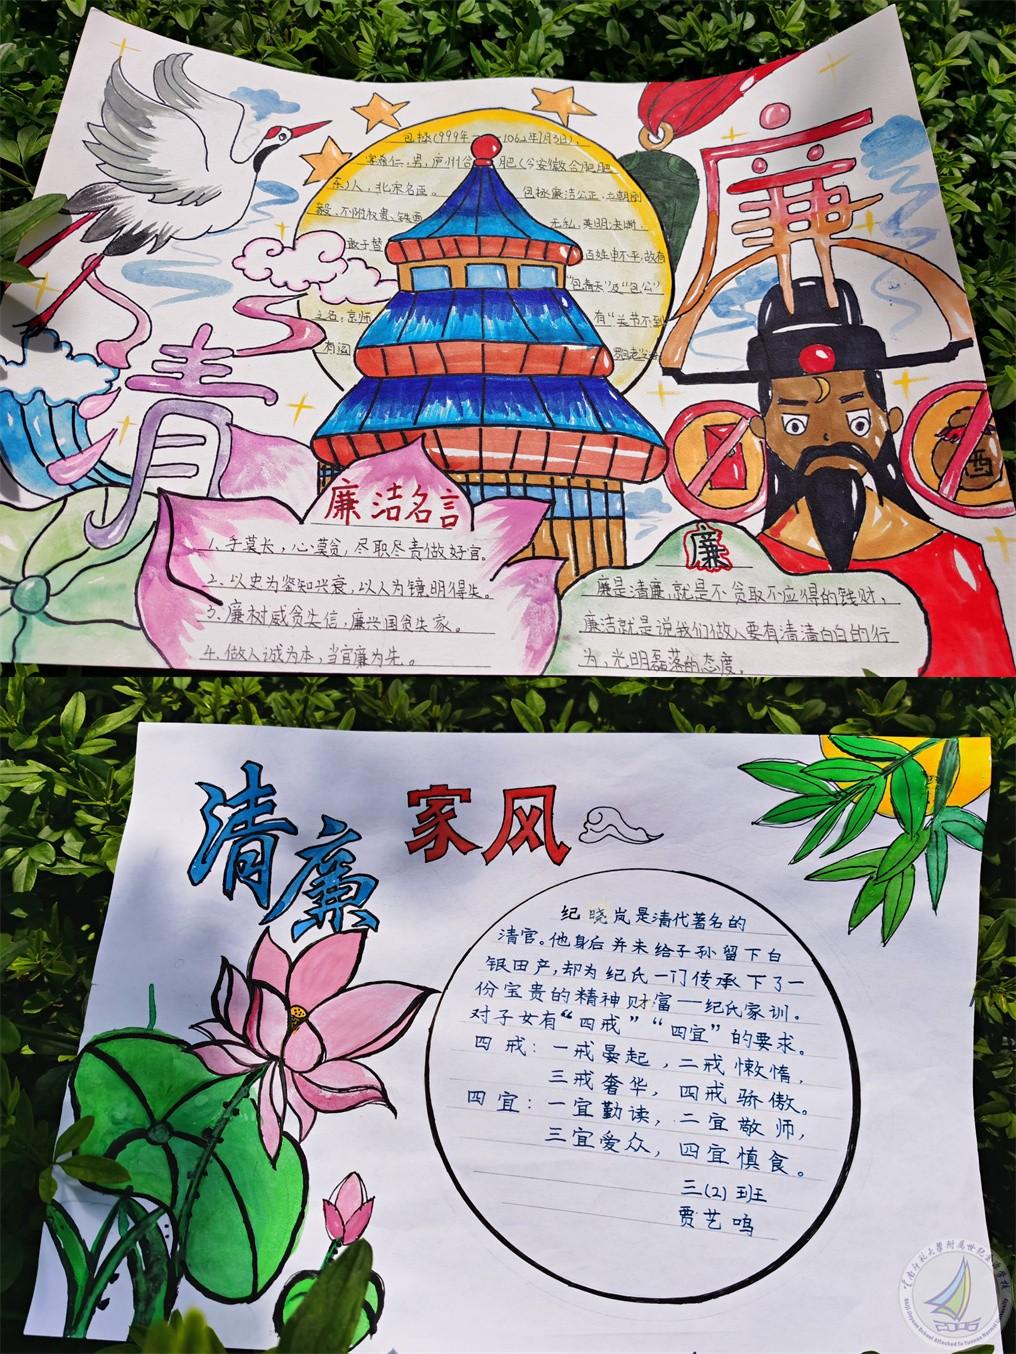 清
廉
包拯(999年——1062年7月3日),
字希仁,男,庐州合肥(今安徽合肥肥
东)人,北宋名臣。
包拯廉洁公正,立朝刚
毅,不附权贵,铁面
无私,英明决断,
敢于替
百姓申不平,故有
"包青天"及"包公"
之名,京师
有"关节不到
有阎
廉洁名言
1、手莫长,心莫贪,尽职尽责做好官。
2、以史为鉴知兴衰,以人为镜明得失。
3、廉树威贪失信,廉兴国贪失家。
4、做人诚为本,当官廉为先。
廉
廉是清廉,就是不贪取不应得的钱财,
廉洁就是说我们做人要有清清白白的行
为,光明磊落的态度。
清廉家风
纪晓岚是清代著名的
清官。他身后并未给子孙留下白
银田产,却为纪氏一门传承下了一
份宝贵的精神财富——纪氏家训。
对子女有"四戒""四宜"的要求。
四戒:一戒晏起,二戒懒惰,
三戒奢华,四戒骄傲。
四宜:一宜勤读,二宜敬师,
三宜爱众,四宜慎食。
三(2)班
贾艺鸣
云南师范大學附属世纪金源學校